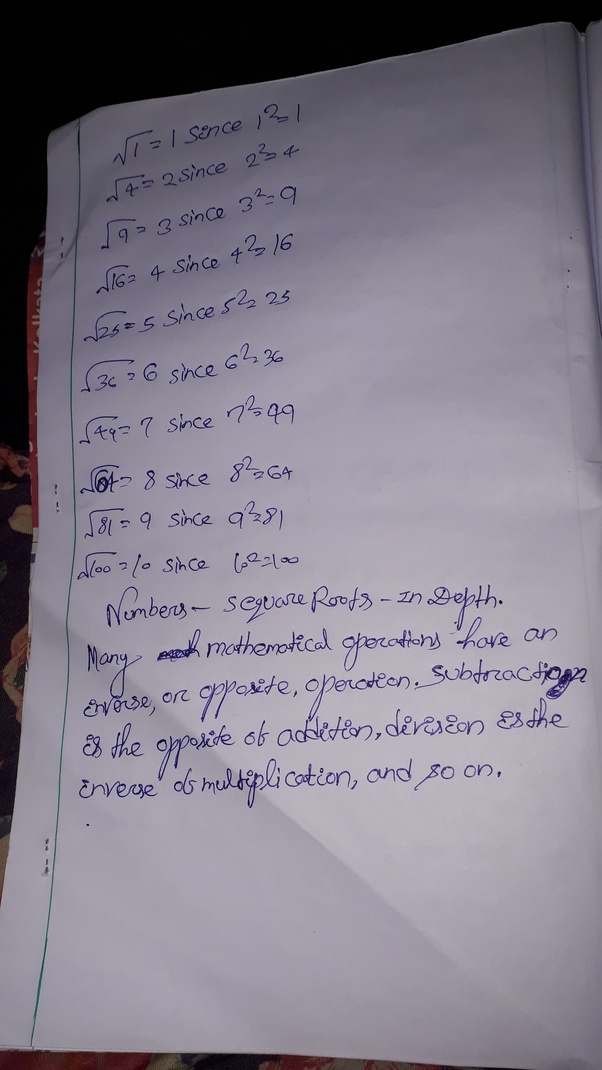 √1 = 1 Since 1²=1
√4 = 2 since 2²= 4
√9 = 3 since 3²= 9
√16= 4 Since 4²=16
√25 = 5 Since 5²= 25
√36 = 6 since 6²=36
√49= 7 since 7²=49
√64= 8 since 8²=64
√81 = 9 since 9²=81
√100 = 10 since 10²=100
Numbers - Sequare Roots - In Depth.
Many mathematical operations have an
inverse, or opposite, operation. Subtraction
is the opposite of addition, division is the
inverse of multiplication, and so on.
Kolkata